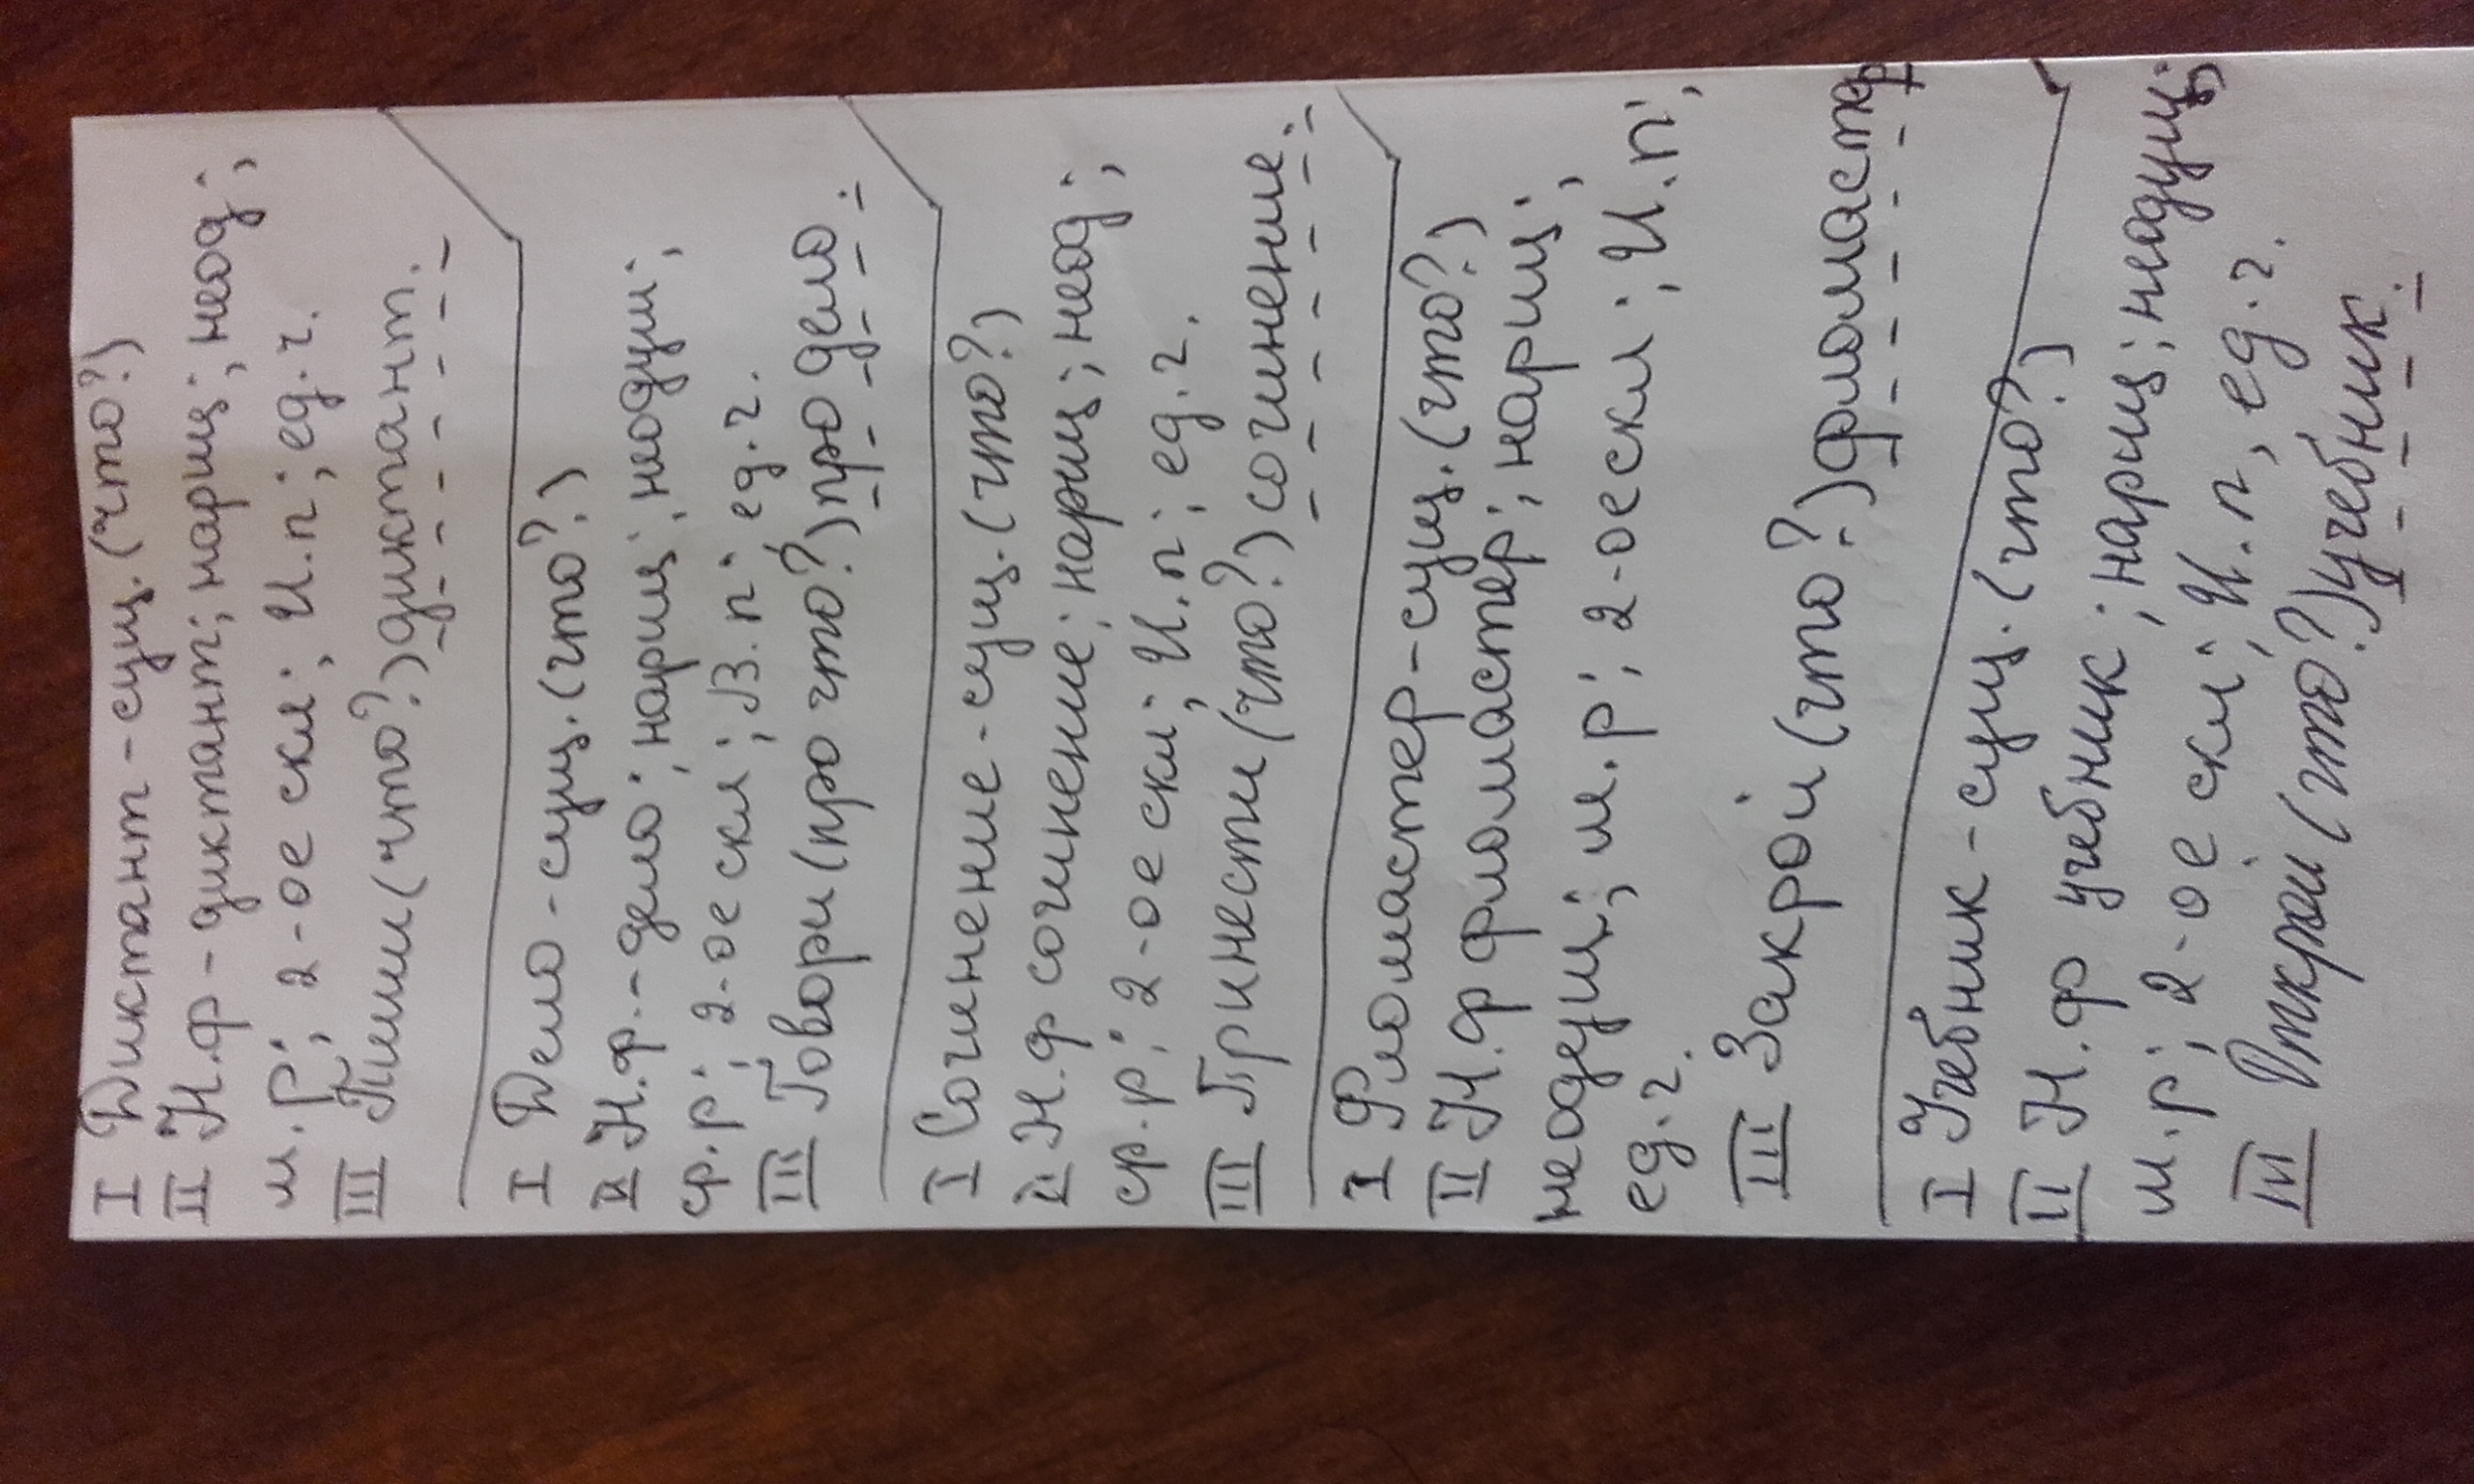 I Диктант - сущ. (что?)
II Н.ф - диктант; нариц; неод;
м.р; 2-ое скл; И.п; ед.ч.
III Пиши (что?) диктант.
I Дело - сущ. (что?)
II Н.ф. - дело; нариц; неодуш;
ср.р; 2-ое скл; В.п; ед.ч.
III Говори (про что?) про дело.
I Сочинение - сущ. (что?)
II Н.ф сочинение; нариц; неод;
ср.р; 2-ое скл; И.п; ед.ч.
III Принести (что?) сочинение.
I Фломастер - сущ. (что?)
II Н.ф фломастер; нариц;
неодуш; м.р; 2-ое скл; И.п;
ед.ч.
III Закрой (что?) фломастер
I Учебник - сущ. (что?)
II Н.ф учебник; нариц; неодуш;
м.р; 2-ое скл; И.п, ед.ч.
III Открой (что?) учебник.